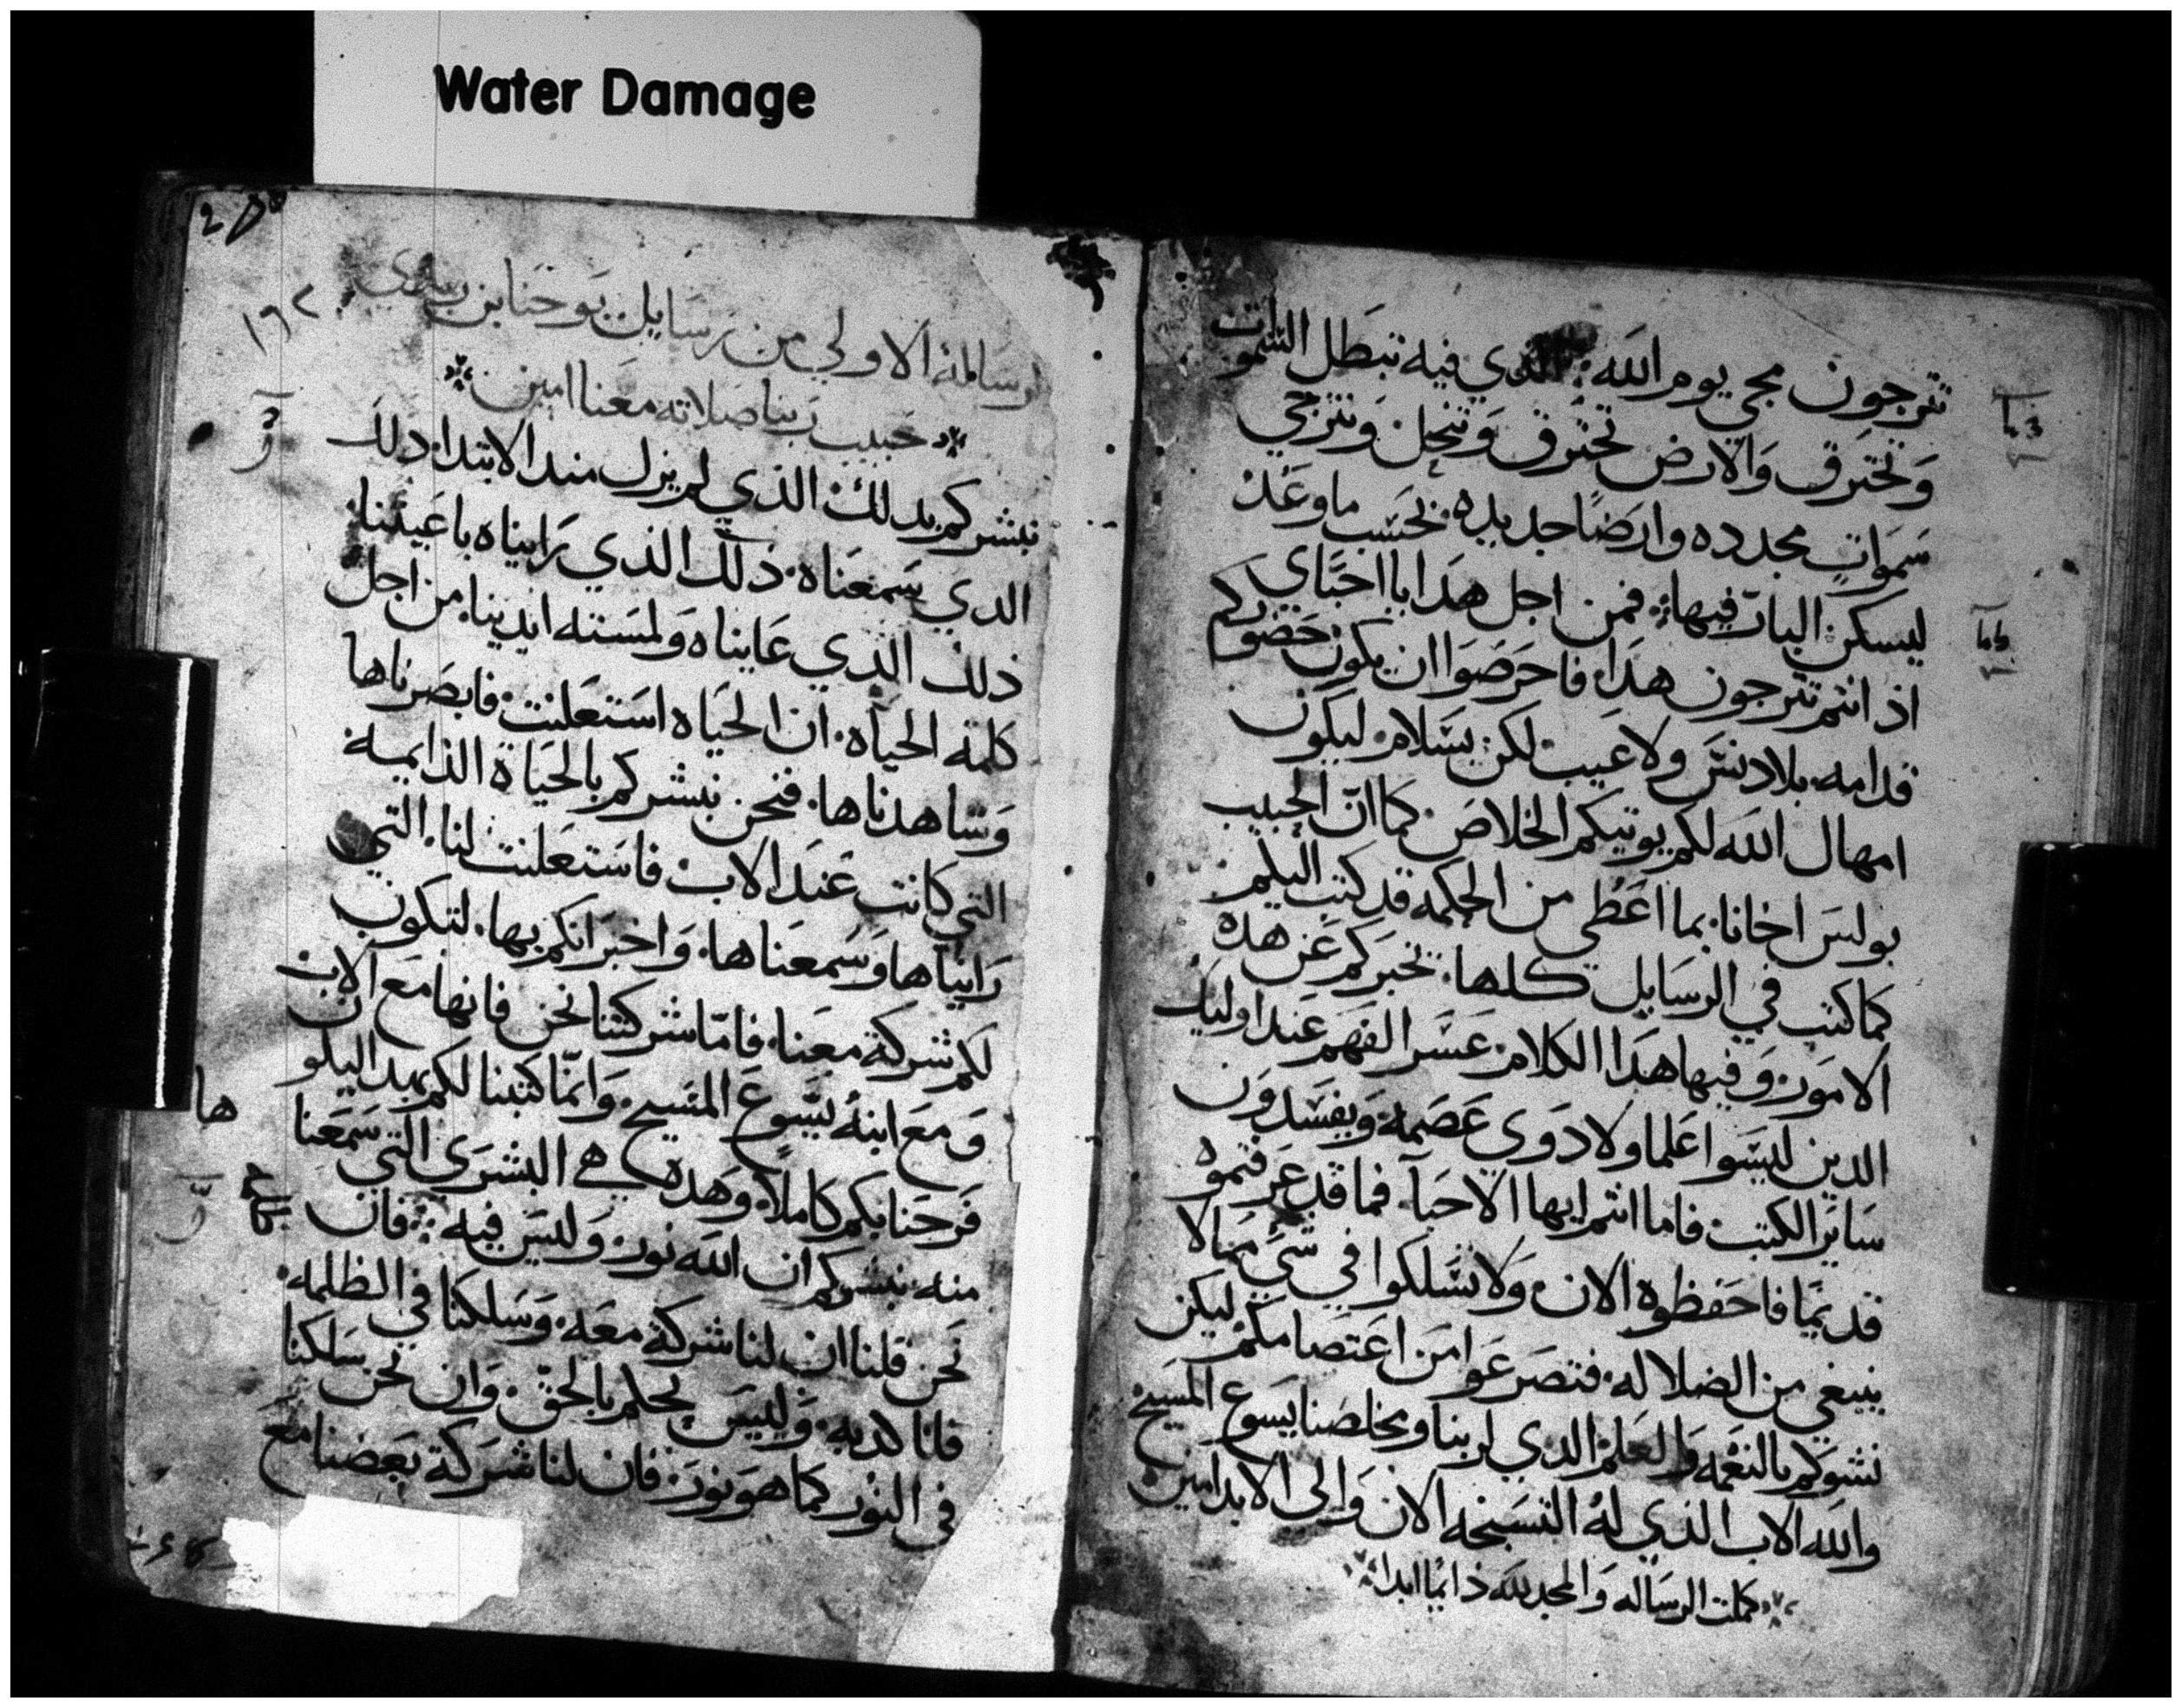 Water Damage
تترجون مجي يوم الله الذي فيه تبطل السموات
وتحترق والارض تحترق وتنحل ونترجي
سموات مجدده وارضا جديده بحسب ما وعد
ليسكن البار فيها فمن اجل هدا يا احباي
اذ انتم تترجون هدا فاحرصوا ان يكون حضوركم
قدامه بلا دنس ولا عيب لكن بسلام ليكون
امهال الله لكم يوتيكم الخلاص كما ان الحبيب
بولس اخانا بما اعطي من الحكمه قد كتب اليكم
كما كتب في الرسايل كلها تخبركم عن هده
الامور وفيها هدا الكلام عسر الفهم عند اوليك
الدين ليسوا علما ولا دوي عصمة ويفسدون
ساير الكتب فاما انتم ايها الاحبا فما قد عرفتموه
قديما فاحفظوه الان ولا تسلكوا في شي مما لا
ينبغي من الضلاله فتصرعوا من اعتصامكم ليكن
نشوكم بالنعمه والعلم الدي لربنا ومخلصنا يسوع المسيح
والله الاب الذي له التسبحه الان والي الابد امين
كملت الرساله والمجد لله دايما ابدا
١٦٢
رسالة الاولي من رسايل يوحنا بن
حبيب ربنا صلاته معنا امين
نبشركم بدلك الذي لم يزل مند الابتدا دلك
الدي سمعناه ذلك الذي رايناه باعيننا
ذلك الذي عايناه ولمسته ايدينا من اجل
كلمة الحياه ان الحياه استعلنت فابصرناها
وشاهدناها فنحن نبشركم بالحياة الدايمة
التي كانت عند الاب فاستعلنت لنا التي
رايناها وسمعناها واخبرانكم بها لتكون
لكم شركة معنا فاما شركتنا نحن فانها مع الاب
ومع ابنه يسوع المسيح وانما كتبنا لكم بهدا ليكون
فرحنا بكم كاملا وهده هي البشري التي سمعنا
ها
منه نبشركم ان الله نور وليس فيه فان
نحن قلنا ان لنا شركة معه وسلكنا في الظلمه
فانا كدبه وليس بحلم بالحق وان نحن سلكنا
في النور كما هو نور فان لنا شركة بعضنا مع